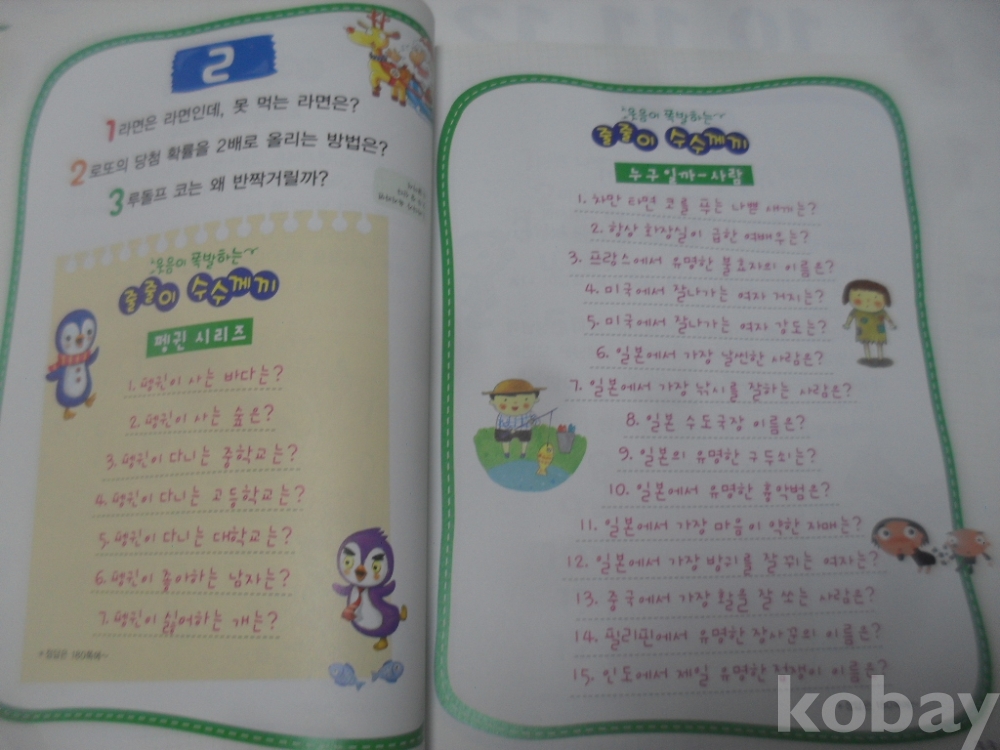 2
1 라면은 라면인데, 못 먹는 라면은?
2 로또의 당첨 확률을 2배로 올리는 방법은?
3 루돌프 코는 왜 반짝거릴까?
웃음이 폭발하는~
졸졸이 수수께끼
펭귄 시리즈
1. 펭귄이 사는 바다는?
2. 펭귄이 사는 숲은?
3. 펭귄이 다니는 중학교는?
4. 펭귄이 다니는 고등학교는?
5. 펭귄이 다니는 대학교는?
6. 펭귄이 좋아하는 남자는?
7. 펭귄이 싫어하는 개는?
웃음이 폭발하는~
졸졸이 수수께끼
누구일까-사람
1. 차만 타면 코를 푸는 나쁜 새끼는?
2. 항상 화장실이 급한 여배우는?
3. 프랑스에서 유명한 불효자의 이름은?
4. 미국에서 잘나가는 여자 거지는?
5. 미국에서 잘나가는 여자 강도는?
6. 일본에서 가장 날씬한 사람은?
7. 일본에서 가장 낚시를 잘하는 사람은?
8. 일본 수도국장 이름은?
9. 일본의 유명한 구두쇠는?
10. 일본에서 유명한 흉악범은?
11. 일본에서 가장 마음이 약한 자매는?
12. 일본에서 가장 방귀를 잘 뀌는 여자는?
13. 중국에서 가장 활을 잘 쏘는 사람은?
14. 필리핀에서 유명한 장사꾼의 이름은?
15. 인도에서 제일 유명한 점쟁이 이름은?
kobay